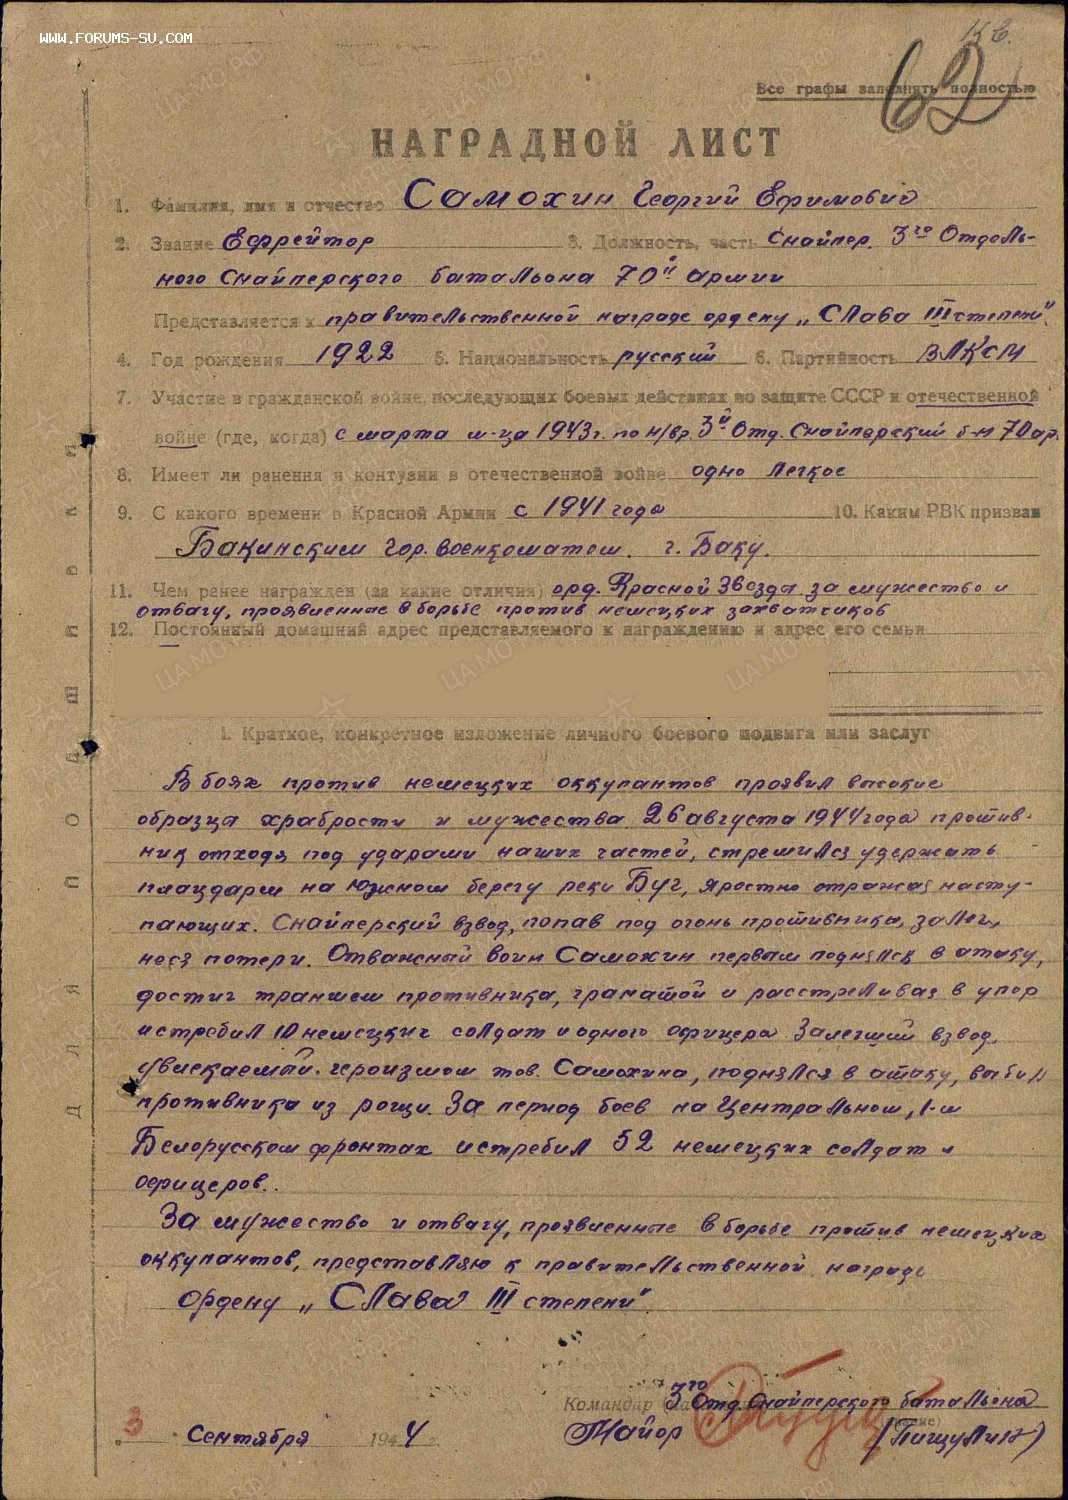 WWW.FORUMS-SU.COM
62
Все графы заполнять полностью
НАГРАДНОЙ ЛИСТ
1. Фамилия, имя и отчество Самохин Георгий Ефимович
2. Звание Ефрейтор 3. Должность, часть Снайпер 3го Отдель-
ного Снайперского батальона 70й армии
Представляется к правительственной награде ордену „Слава III степени".
4. Год рождения 1922 5. Национальность русский 6. Партийность ВЛКСМ
7. Участие в гражданской войне, последующих боевых действиях по защите СССР и отечественной
войне (где, когда) с марта м-ца 1943г. по н/вр. 3й Отд. Снайперский б-н 70 ар.
8. Имеет ли ранения и контузии в отечественной войне одно легкое
9. С какого времени в Красной Армии с 1941 года 10. Каким РВК призван
Бакинским Гор. военкоматом. г. Баку.
11. Чем ранее награжден (за какие отличия) орд. Красной Звезда за мужество и
отвагу, проявленные в борьбе против немецких захватчиков
12. Постоянный домашний адрес представляемого к награждению и адрес его семьи
I. Краткое, конкретное изложение личного боевого подвига или заслуг
В боях против немецких оккупантов проявил высокие
образца храбрости и мужества 26 августа 1944 года против-
ник отходя под ударами наших частей, стремился удержать
плацдарм на южном берегу реки Буг, яростно отражая насту-
пающих. Снайперский взвод, попав под огонь противника, залег,
неся потери. Отважный воин Самохин первым поднялся в атаку,
достиг траншеи противника, гранатой и расстреливая в упор
истребил 10 немецких солдат и одного офицера Залегший взвод,
увлекаемый героизмом тов. Самохина, поднялся в атаку, выбил
противника из рощи. За период боев на Центральном, 1-м
Белорусском фронтах истребил 52 немецких солдат и
офицеров.
За мужество и отвагу, проявленные в борьбе против немецких
оккупантов, представляю к правительственной награде
ордену „Слава III степени".
Командир 3го Отд. Снайперского батальона
Майор (Пищулин)
3 Сентября 1944 г.
ДЛЯ ПОДШИВКИ